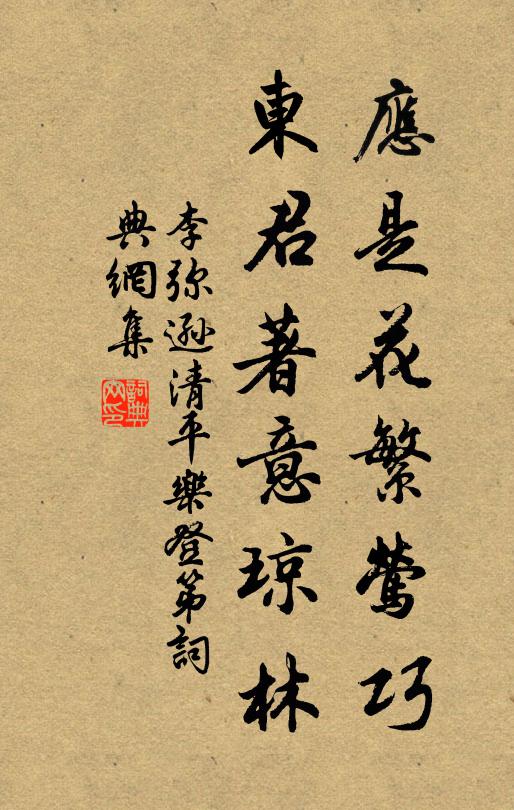 應是花繁鶯巧
東君著意琼林
李弥遜清平樂登第詞
典網集
詞典網印